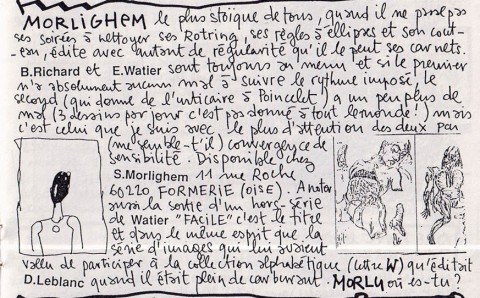 MORLIGHEM le plus stoïque de tous, quand il ne passe pas
ses soirées à nettoyer ses Rotring, ses règles à ellipses et son cout-
-eau, édite avec autant de régularité qu'il le peut ses carnets.
B.Richard et E.Watier sont toujours au menu et si le premier
n'a absolument aucun mal à suivre le rythme imposé, le
second (qui donne de l'urticaire à Poincelet) a un peu plus de
mal (3 dessins par jour c'est pas donné à tout le monde!) mais
c'est celui que je suis avec le plus d'attention des deux par
(me semble-t'il) convergence de
sensibilité. Disponible chez
S.Morlighem 11 rue Roche
60220 FORMERIE (OISE). A noter
aussi la sortie d'un hors-série
de Watier "FACILE" c'est le titre
et dans le même esprit que la
série d'images qui lui avaient
valu de participer à la collection alphabétique (lettre W) qu'éditait
D.Leblanc quand il était plein de carburant. MORLY où es-tu?